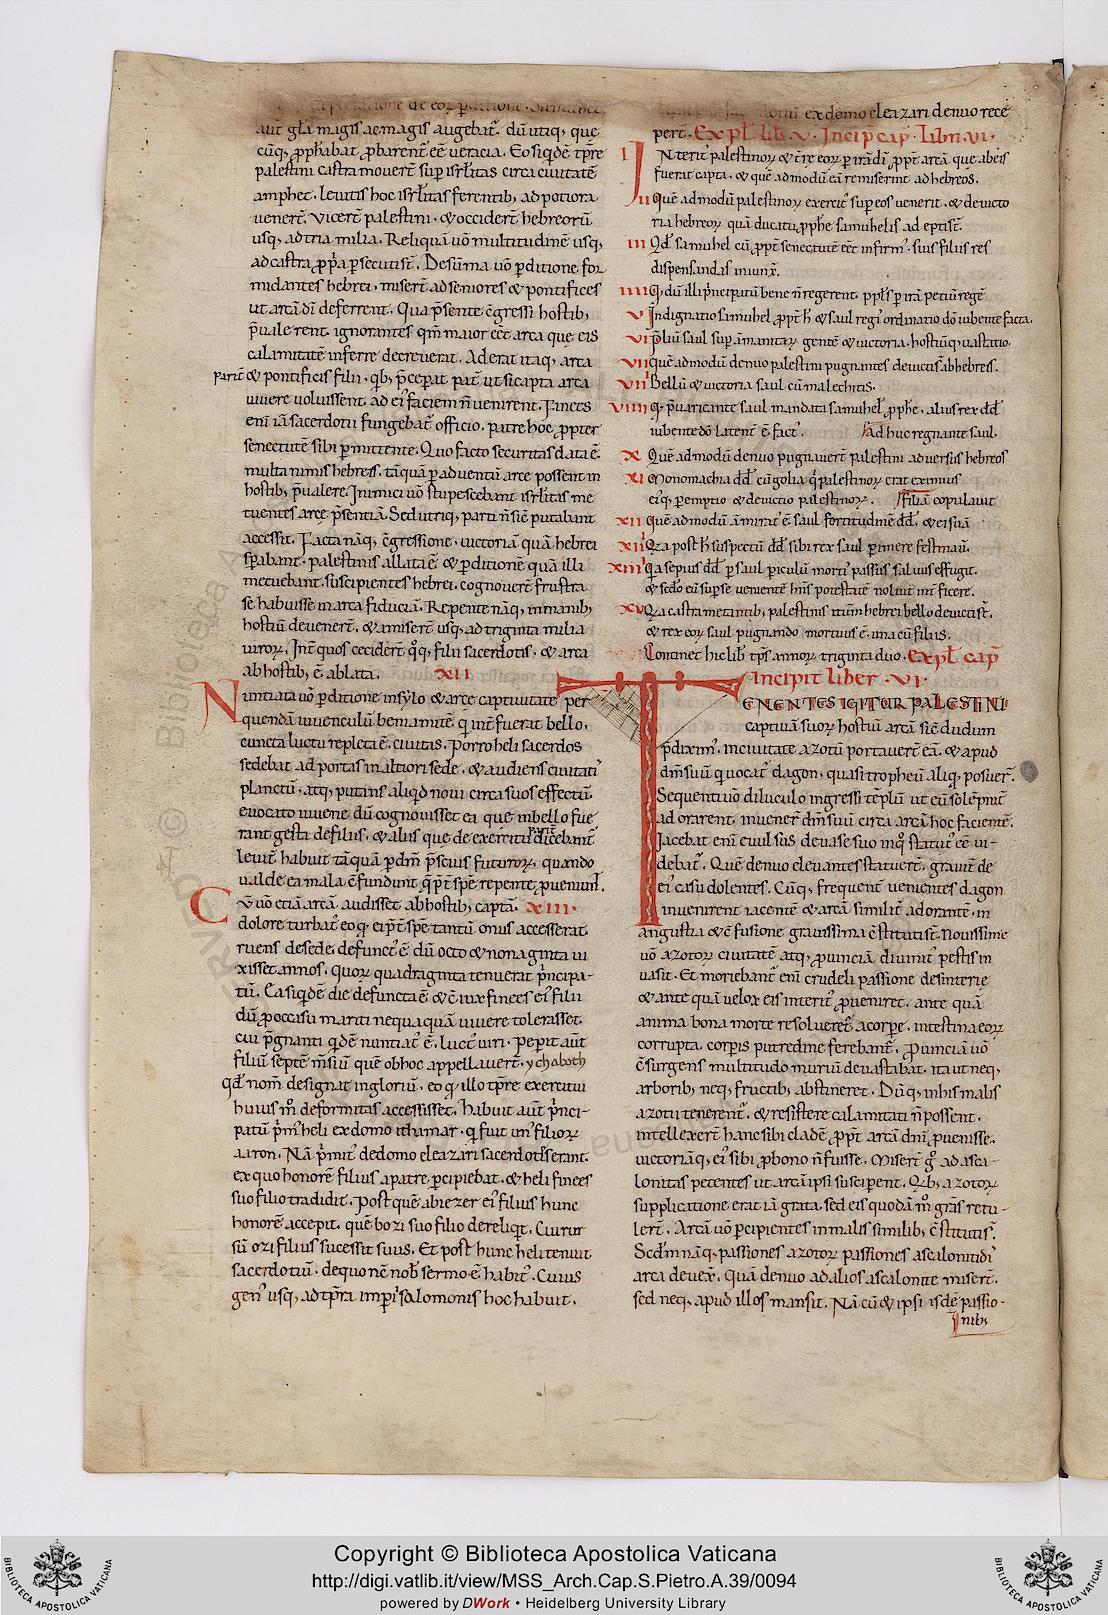 de eoꝝ ꝑditione
aut̄ gl̄a magis ac magis augebat᷑. dū utiq; que
cūq; ꝓph̄abat ꝓbarent᷑ eē ueracia. Eo siqdē tp̄re
palestini castra mouerē suꝑ isrl̄itas circa ciuitatē
amphec. leuitis hoc isrl̄itas ferentib; ad potiora
uenert̄. Vicert̄ palestini. & occidert̄ hebreorū
usq; ad tria milia. Reliquā uō multitudinē usq;
ad castra ꝓpria ꝑsecuti st̄. De sūma uō ꝑditione for
midantes hebrei. misert̄ ad seniores & pontifices
ut arcā dī deferrent. Qua p̄sente ēgressi hostib;
p̄ualerent. ignorantes qm̄ maior eēt arca quę eis
calamitatē inferre decreuerat. Aderat itaq; arca
parit̄ & pontificis filii. qb; p̄ceperat pat᷑ ut si capta arca
uiuere uoluissent. ad ei᷒ faciem n̄ uenirent. Finees
eni iā sacerdotii fungebat᷑ officio. patre hoc ꝓpter
senectutē sibi ꝑmittente. Quo facto securitas data ē
multa nimis hebreis. tāquā ꝑ aduentū arcę possent in
hostib; p̄ualere. Inimici uō stupescebant isrl̄itas me
tuentes arcę p̄sentiā. Sed utriq; parti n̄ siē putabant
accessit. Facta nāq; ēgressione. uictoriā quā hebrei
sꝑabant. palestinis allata ē. & ꝑditionē quā illi
metuebant. suscipientes hebrei. cognouert̄ frustra
se habuisse in arca fiduciā. Repente nāq; in manib;
hostiū deuenert̄. & amisert̄ usq; ad triginta milia
uiroꝝ. Int̄ quos cecidert̄ qq; filii sacerdotis. & arca
ab hostib; ē ablata. XII
Nuntiata uō ꝑditione in sylo & arcę captiuitate per
quendā iuuenculū beniamitē. q int̄fuerat bello.
cuncta luctu repleta ē ciuitas. Porro heli sacerdos
sedebat ad portas in altiori sede. & audiens ciuitatis
planctū. atq; putans aliqd noui circa suos effectū.
euocato iuuene dū cognouisset ea que in bello fue
rant gesta de filiis. & aliis que de exercitu dicebant᷑
leuit̄ habuit tāquā ꝑ dm̄ p̄scius futuroꝝ. quando
ualde ea mala cfundunt q p̄t̄ spē repente ꝓueniunt.
Cū uō etiā arcā audisset ab hostib; captā. XIII.
dolore turbat᷒ eo q ei p̄t̄ spē tantū onus accesserat.
ruens de sede. defunct᷒ ē dū octo & nonaginta ui
xisset annos. quoꝝ quadraginta tenuerat p̄ncipa-
tū. Ea siqdē die defuncta ē & cīux finees ei᷒ filii
dū ꝓ occisu mariti nequaquā uiuere tolerasset.
cui p̄gnanti qdē nuntiat᷒ ē. luct᷒ uiri. Peperit aut̄
filiū septē m̄siū quē ob hoc appellauert̄. ychaboth
qd̄ nom̄ designat ingloriū. eo q illo tp̄re exercitui
huius m̊ deformitas accessisset. habuit aut̄ p̄nci-
patū p̄m᷒ heli ex domo ithamar. q fuit un᷒ filioꝝ
aaron. Nā p̄mit᷒ de domo eleazari sacerdotes erant.
ex quo honorē filius a patre ꝑcipiebat. & heli finees
suo filio tradidit. Post quē abiezer ei᷒ filius hunc
honorē accepit. quē bozi suo filio dereliqt. Cui rur
sū ozi filius sucessit suus. Et post hunc heli tenuit
sacerdotiū. de quo nē nob̄ sermo ē habit᷒. Cuius
gen᷒ usq; ad tp̄ra imperii salomonis hoc habuit.
ex domo eleazari denuo rece
pert̄. Expl̄ lib̄ V. Incip̄ cap̄. Libri. VI.
I Interit᷒ palestinoꝝ & cīre eoꝝ ꝑ irā dī ꝓpt̄ arcā que ab eis
fuerat capta. & quē admodū eā remiserint ad hebreos.
II Quē admodū palestinoꝝ exercit᷒ sup eos uenerit. & de uicto
ria hebreoꝝ quā ducatu ꝓph̄e samuhelis adepti st̄.
III Qd̄ samuhel cū ꝓpt̄ senectutē eēt infirm᷒. suis filiis res
dispensandas iniunx̄.
IIII Q dū illi p̄ncipatū bene n̄ regerent. ppl̄s ꝑ irā petiuit regē
V Indignatio samuhel ꝓpt̄ h̄ & saul regis ordinatio dō iubente facta.
VI Prēliū saul suꝑ āmanitaꝝ gentē & uictoria. hostiūq; uastatio.
VII Quē admodū denuo palestini pugnantes deuicti st̄ ab hebreis.
VIII Bellū & uictoria saul cū malechitis.
VIIII Q p̄uaricante saul mandata samuhel ꝓph̄e. alius rex dd̄
iubente dō latent̄ ē fact᷒. ad huc regnante saul.
X Quē admodū denuo pugnauert̄ palestini aduersus hebreos
XI Monomachia dd̄ cū golia q palestinoꝝ erat eximius
ei᷒q; ꝑemptio & deuictio palestinoꝝ. filiā copulauit
XII Quē admodū āmirat᷒ ē saul fortitudinē dd̄. & ei suā
XIII Qa post h̄ suspectū dd̄ sibi rex saul ꝑimere festinau̅.
XIIII Qa sepius dd̄ ꝑ saul ꝑiculū mortis passus saluus effugit.
& sedō eū suꝑ se uenientē hn̄s potestatē noluit int̄ficere.
XV Qa castra metantib; palestinis itm̄ hebrei bello deuicti st̄.
& rex eoꝝ saul pugnando mortuus ē. una cū filiis.
Continet hic lib̄ tp̄s annoꝝ triginta duo. Expl̄ cap̄
Incipit liber. VI.
TENENTES IGITUR PALESTINI
captiuā suoꝝ hostiū arcā siē dudum
p̄dixim᷒. in ciuitate azotū portauert̄ eā. & apud
dm̄ suū q uocat᷒ dagon. quasi tropheū aliq posuer̄.
Sequenti uō diluculo ingressi tēplū ut eū solēpnit̄
adorarent. inuener̄ dm̄ suū circa arcā hoc facientē.
Iacebat eni euulsus de uase suo in q statut᷒ eē ui-
debat᷑. Quē denuo eleuantes statuert̄. grauit̄ de
ei᷒ casu dolentes. Cūq; frequent̄ uenientes dagon
inuenirent iacentē & arcā similit̄ adorantē. in
angustia & cfusione grauissima cstituti st̄. Nouissime
uō azotoꝝ ciuitatē atq; ꝓuinciā diuinit᷒ pestis in
uasit. Et moriebant᷑ eni crudeli passione desinterię
& ante quā uelox eis interit᷒ ꝓueniret. ante quā
anima bona morte resolueret᷑ a corꝑe. intestina eoꝝ
corrupta. corꝑis putredine ferebant᷑. Prouinciā uō
csurgens multitudo muriū deuastabat. ita ut neq;
arborib; neq; fructib; abstineret. Dūq; in his malis
azotii tenerent᷑. & resistere calamitati n̄ possent.
intellexert̄ hanc sibi cladē ꝓpt̄ arcā dnī ꝓuenisse.
uictoriāq; ei᷒ sibi ꝓ bono n̄ fuisse. Misert̄ g ad asca-
lonitas petentes ut arcā ipsi susciꝑent. Qb; azotoꝝ
supplicatione erat iā grata. sed eis quodā m̊ gr̄as retu-
lert̄. Arcā uō ꝑcipientes in malis similib; cstituti st̄.
Secū nāq; passiones azotoꝝ passiones ascalonitidis
arca deuex̄. Quā denuo ad alios ascalonite misert̄.
sed neq; apud illos mansit. Nā cū & ipsi isdē passio-
nib;
Copyright © Biblioteca Apostolica Vaticana
http://digi.vatlib.it/view/MSS_Arch.Cap.S.Pietro.A.39/0094
powered by DWork • Heidelberg University Library
BIBLIOTECA APOSTOLICA VATICANA
BIBLIOTECA APOSTOLICA VATICANA